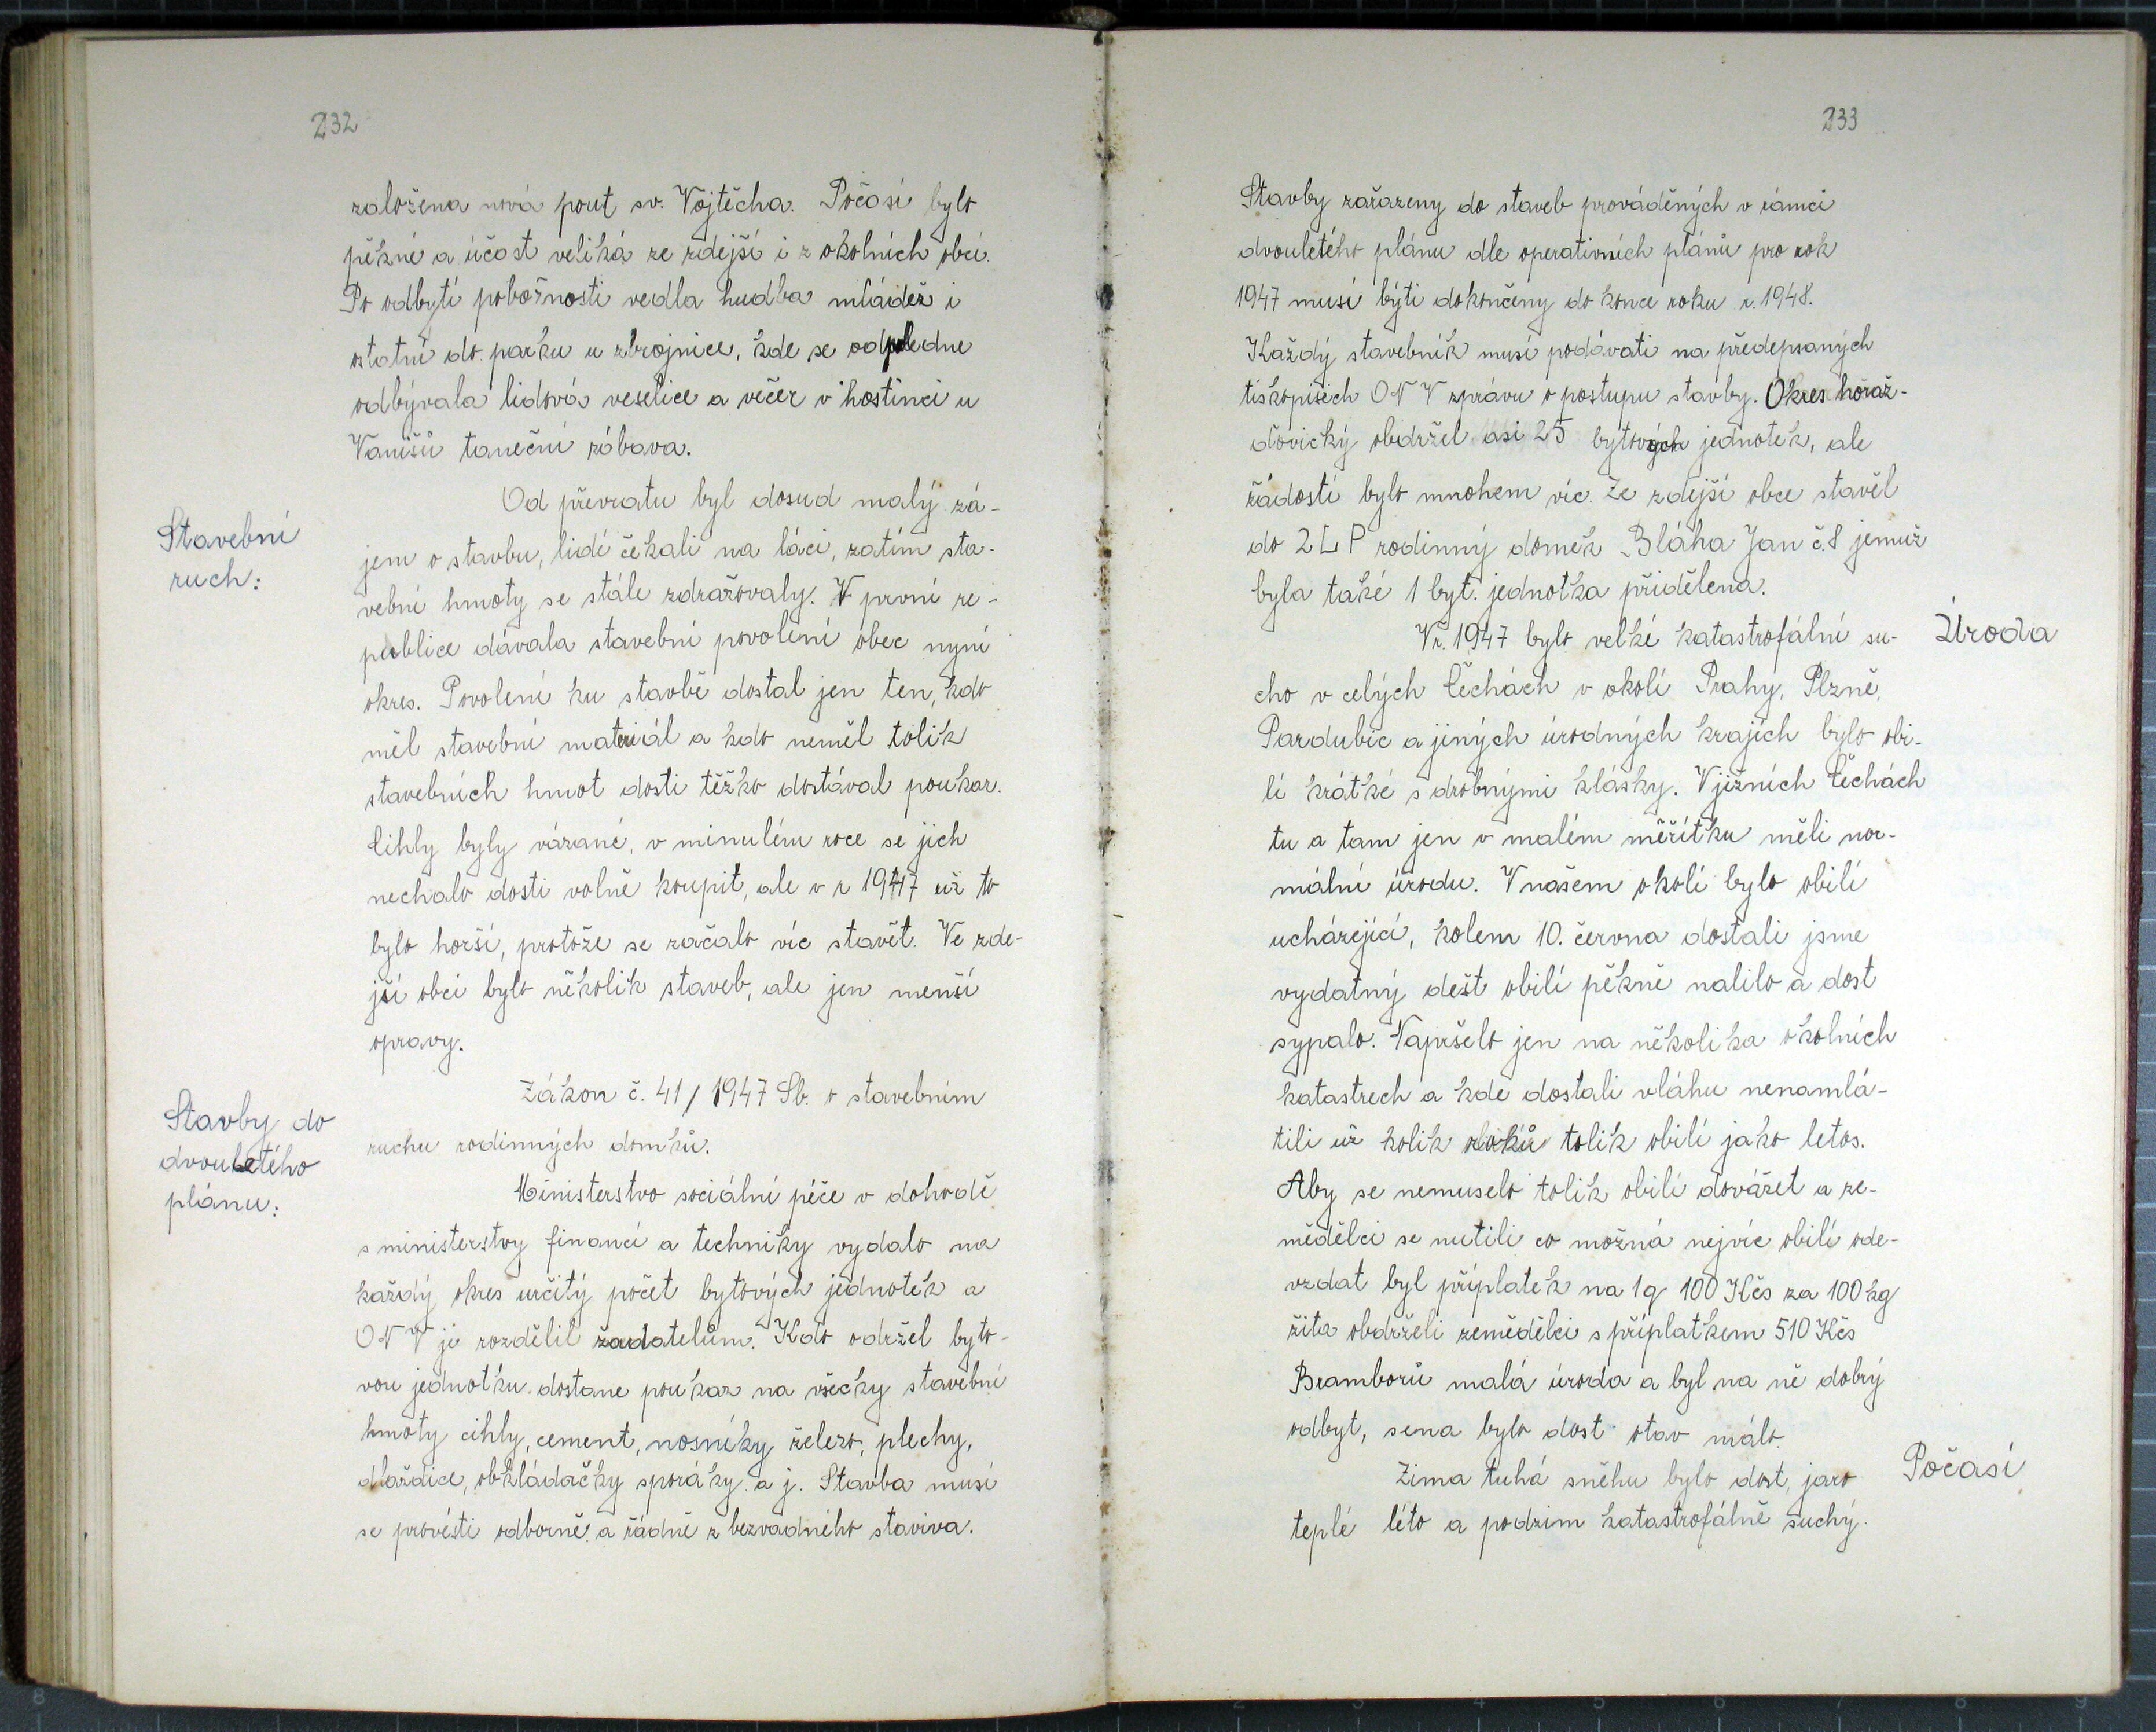 232
založena nová pouť sv. Vojtěcha. Počasí bylo
pěkné a účast veliká ze zdejší i z okolních obcí.
Po odbytí pobožnosti vedla hudba mládež i
ostatní do parku u zbrojnice, kde se odpoledne
odbývala lidová veselice a večer v hostinci u
Vanišů taneční zábava.
Stavební
ruch:
Od převratu byl dosud malý zá-
jem o stavbu, lidé čekali na láci, zatím sta-
vební hmoty se stále zdražovaly. V první re-
publice dávala stavební povolení obec nyní
okres. Povolení ku stavbě dostal jen ten, kdo
měl stavební materiál a kdo neměl tolik
stavebních hmot dosti těžko dostával poukaz.
Cihly byly vázané, v minulém roce se jich
nechalo dosti volně koupit, ale v r 1947 už to
bylo horší, protože se začalo víc stavět. Ve zde-
jší obci bylo několik staveb, ale jen menší
opravy.
Stavby do
dvouletého
plánu:
Zákon č. 41/1947 Sb. o stavebním
ruchu rodinných domků.
Ministerstvo sociální péče v dohodě
s ministerstvy financí a techniky vydalo na
každý okres určitý počet bytových jednotek a
ONV je rozdělil žadatelům. Kdo održel byto-
vou jednotku dostane poukaz na všecky stavební
hmoty cihly, cement, nosníky železo, plechy,
dlaždice, obkládačky sporáky a j. Stavba musí
se provésti odborně a řádně z bezvadného staviva.
233
Stavby zařazeny do staveb prováděných v rámci
dvouletého plánu dle operativních plánů pro rok
1947 musí býti dokončeny do konce roku r. 1948.
Každý stavebník musí podávati na předepsaných
tiskopisech ONV zprávu o postupu stavby. Okres horaž-
ďovický obdržel asi 25 bytových jednotek, ale
žádostí bylo mnohem víc. Ze zdejší obce stavěl
do 2LP rodinný domek Bláha Jan č.8 jemuž
byla také 1 byt. jednotka přidělena.
Úroda
V r. 1947 bylo velké katastrofální su-
cho v celých Čechách v okolí Prahy, Plzně,
Pardubic a jiných úrodných krajích bylo obi-
lí krátké s drobnými klásky. V jižních Čechách
tu a tam jen v malém měřítku měli nor-
mální úrodu. V našem okolí bylo obilí
ucházející, kolem 10. června dostali jsme
vydatný dešt obilí pěkně nalilo a dost
sypalo. Napršelo jen na několika okolních
katastrech a kde dostali vláhu nenamlá-
tili už kolik roků tolik obilí jako letos.
Aby se nemuselo tolik obilí dovážet a ze-
mědělci se nutili co možná nejvíc obilí ode-
vzdat byl příplatek na 1q 100 Kčs za 100 kg
žita obdrželi zemědělci s příplatkem 510 Kčs
Bramborů malá úroda a byl na ně dobrý
odbyt, sena bylo dost otav málo.
Počasí
Zima tuhá sněhu bylo dost, jaro
teplé léto a podzim katastrofálně suchý.